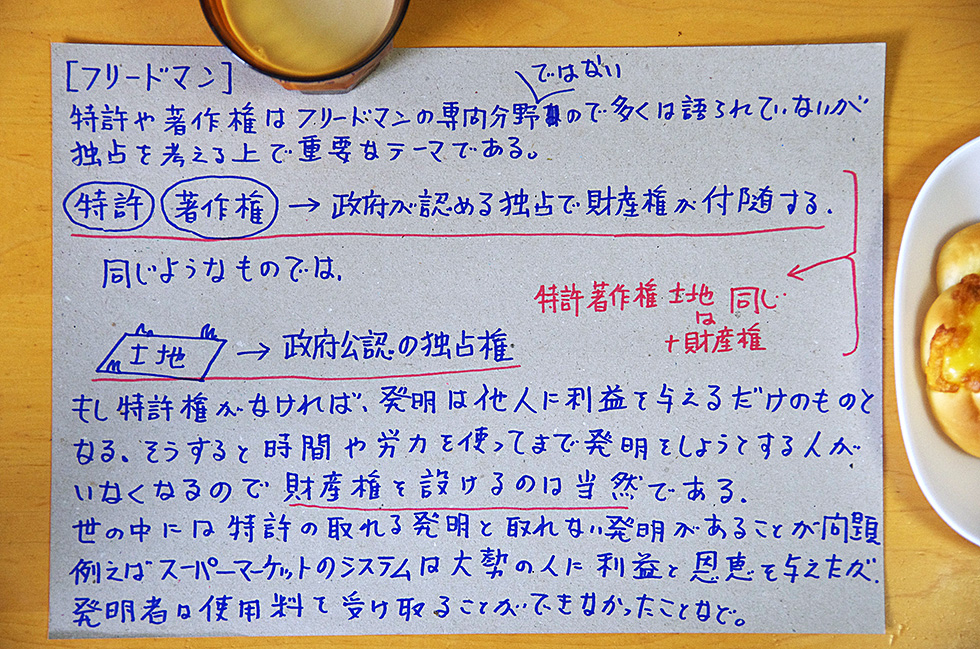 [フリードマン]
ではない
特許や著作権はフリードマンの専内分野ので多くは語られていないが
独占を考える上で重要なテーマである。
特許 著作権 → 政府が認める独占で財産権が付随する.
同じようなものでは、
特許著作権 土地 同じ
は
+財産権
土地 → 政府公認の独占権
もし特許権がなければ、発明は他人に利益を与えるだけのものと
なる、そうすると時間や労力を使ってまで発明をしようとする人が
いなくなるので財産権を設けるのは当然である.
世の中には特許の取れる発明と取れない発明があることが問題
例えばスーパーマーケットのシステムは大勢の人に利益と恩恵を与えたが、
発明者は使用料て受け取ることができなかったことなど。